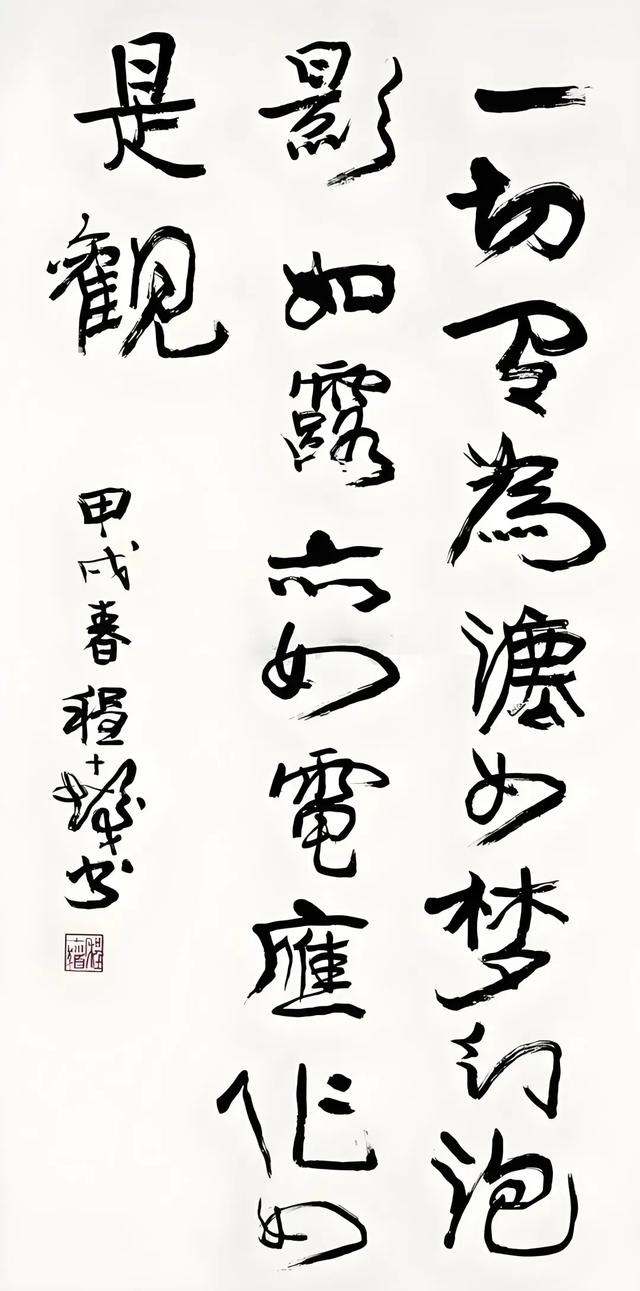 一切有為灋如梦幻泡
影如露亦如電應作如
是觀
甲戌春程十髮书